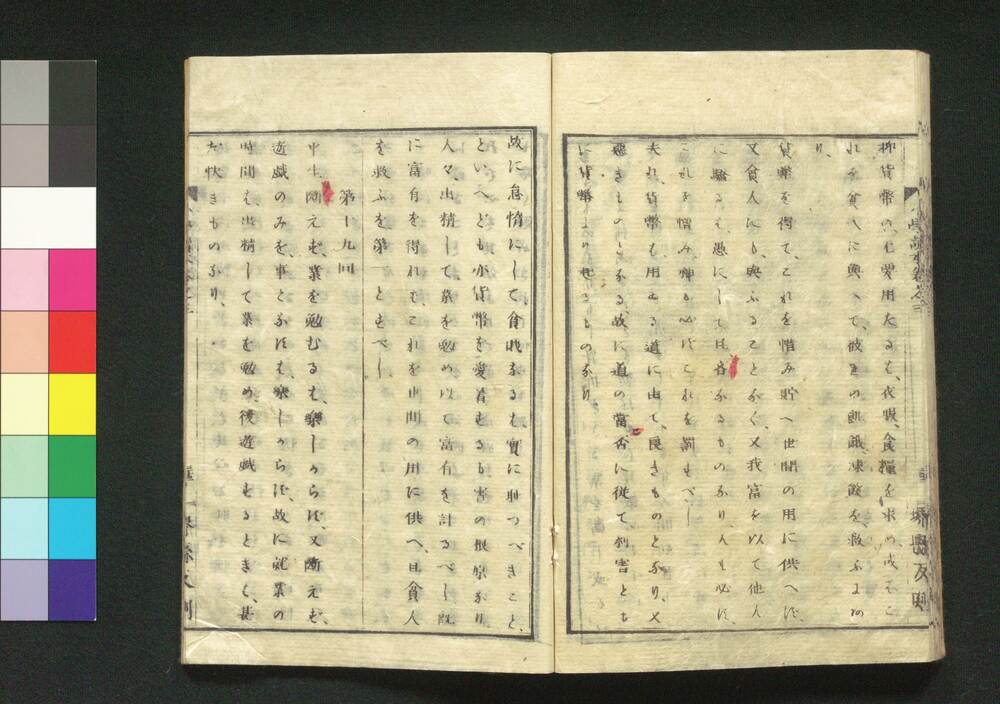 抑貨幣の主要用たるは、衣服、食糧を求め或はこ
れを貧人に與へて、彼等の飢餓、凍餒を、救ふにあ
り、
貨幣を得て、これを惜み貯へ世間の用に供へず、
又貧人にも、與ふることなく、又我富を以て他人
に驕るは、愚にしては吝なるものなり、人も必ず、
これを憎み、神も必ずこれを罰すべし、
夫れ貨幣も用ゐる道に由て、良きものとなり、又
悪きものとなる、故に道の當否に従て利害とも
に貨幣より起るものなり
小學讀本巻之三
堺縣反刻
故に怠惰にして、貧賎なるは、實に耻づべきこと、
といへども亦貨幣を愛着するも害の根原なり、
人々、出精して業を勉め以て富有を計るべし、既
に富有を得れば、これを世間の用に供へ、且貧人
を救ふを第一とすべし
第十九回
平生断えず、業を勉むるは、樂しからず、又断えず、
遊戯のみを、事となすは、樂しからず、故に就業の
時間は出精して業を勉め後遊戯するときは、甚
だ快きものなり、